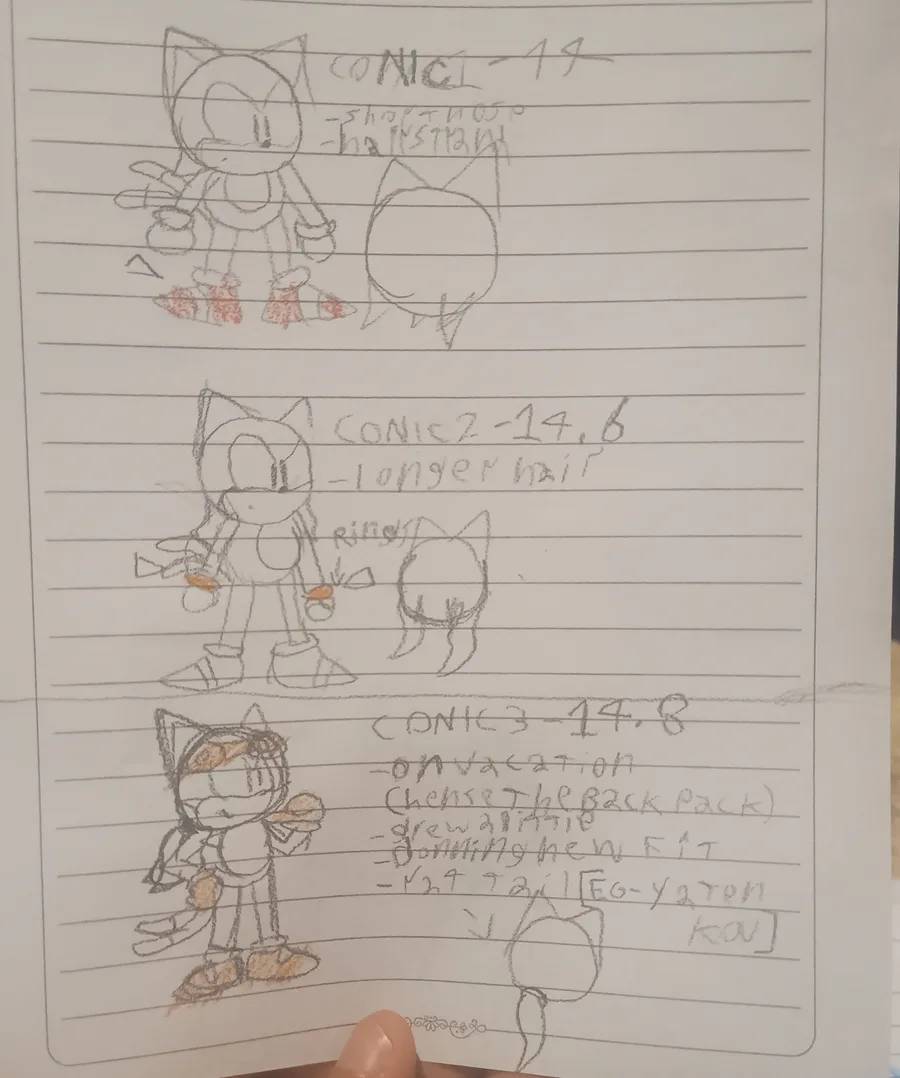 CONIC1-14
-short nose
-hair strand
CONIC2-14.6
-longer hair
Rings
CONIC3-14.8
-on vacation
(hense The Back Pack)
-grew a little
-Donning new Fit
-rat Tail [EG-yaTen
KOU]